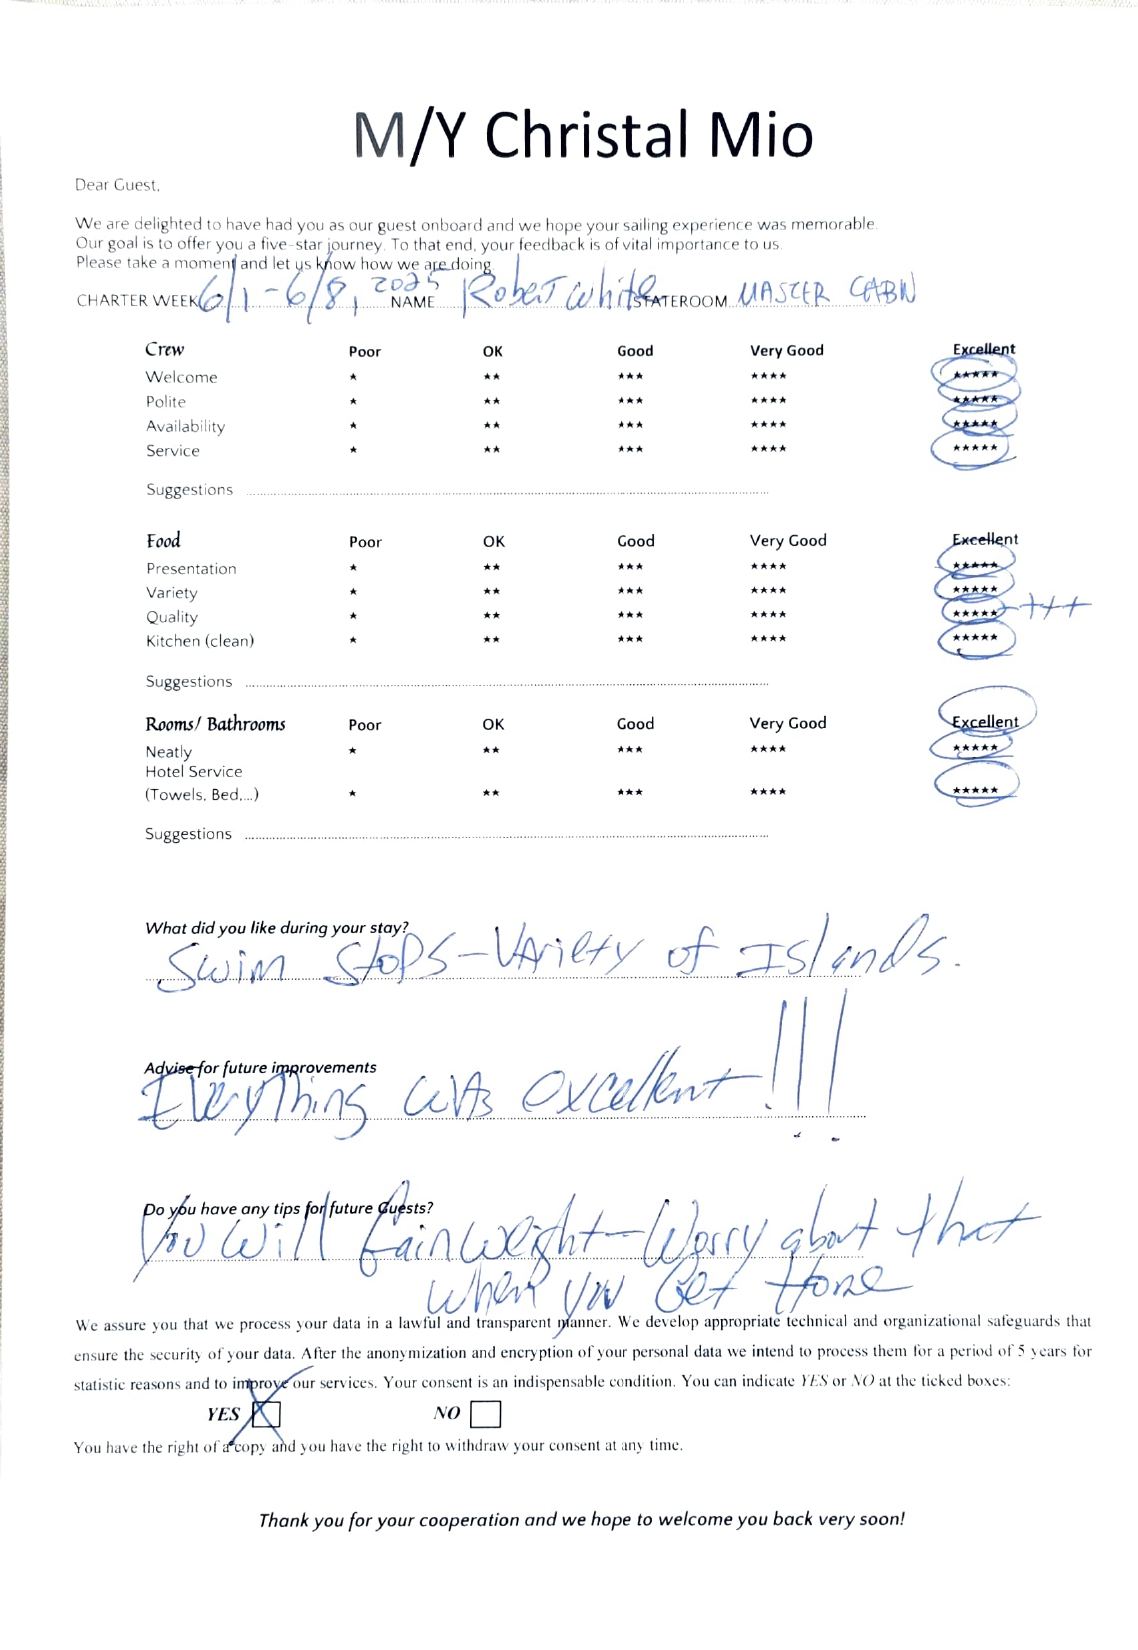 M/Y Christal Mio
Dear Guest,
We are delighted to have had you as our guest onboard and we hope your sailing experience was memorable.
Our goal is to offer you a five-star journey. To that end, your feedback is of vital importance to us.
Please take a moment and let us know how we are doing
CHARTER WEEK 6/1-6/8, 2025 NAME Robert White STATEROOM MASTER CABIN
Crew Poor OK Good Very Good Excellent
Welcome ★ ★★ ★★★ ★★★★ ★★★★★
Polite ★ ★★ ★★★ ★★★★ ★★★★★
Availability ★ ★★ ★★★ ★★★★ ★★★★★
Service ★ ★★ ★★★ ★★★★ ★★★★★
Suggestions
Food Poor OK Good Very Good Excellent
Presentation ★ ★★ ★★★ ★★★★ ★★★★★
Variety ★ ★★ ★★★ ★★★★ ★★★★★
Quality ★ ★★ ★★★ ★★★★ ★★★★★ +++
Kitchen (clean) ★ ★★ ★★★ ★★★★ ★★★★★
Suggestions
Rooms/ Bathrooms Poor OK Good Very Good Excellent
Neatly ★ ★★ ★★★ ★★★★ ★★★★★
Hotel Service
(Towels, Bed,...) ★ ★★ ★★★ ★★★★ ★★★★★
Suggestions
What did you like during your stay?
Swim Stops - Variety of Islands.
Advise for future improvements
Everything was excellent!!!
Do you have any tips for future Guests?
You will Gain Weight - Worry about that
when you Get Home
We assure you that we process your data in a lawful and transparent manner. We develop appropriate technical and organizational safeguards that
ensure the security of your data. After the anonymization and encryption of your personal data we intend to process them for a period of 5 years for
statistic reasons and to improve our services. Your consent is an indispensable condition. You can indicate YES or NO at the ticked boxes:
YES X NO
You have the right of a copy and you have the right to withdraw your consent at any time.
Thank you for your cooperation and we hope to welcome you back very soon!